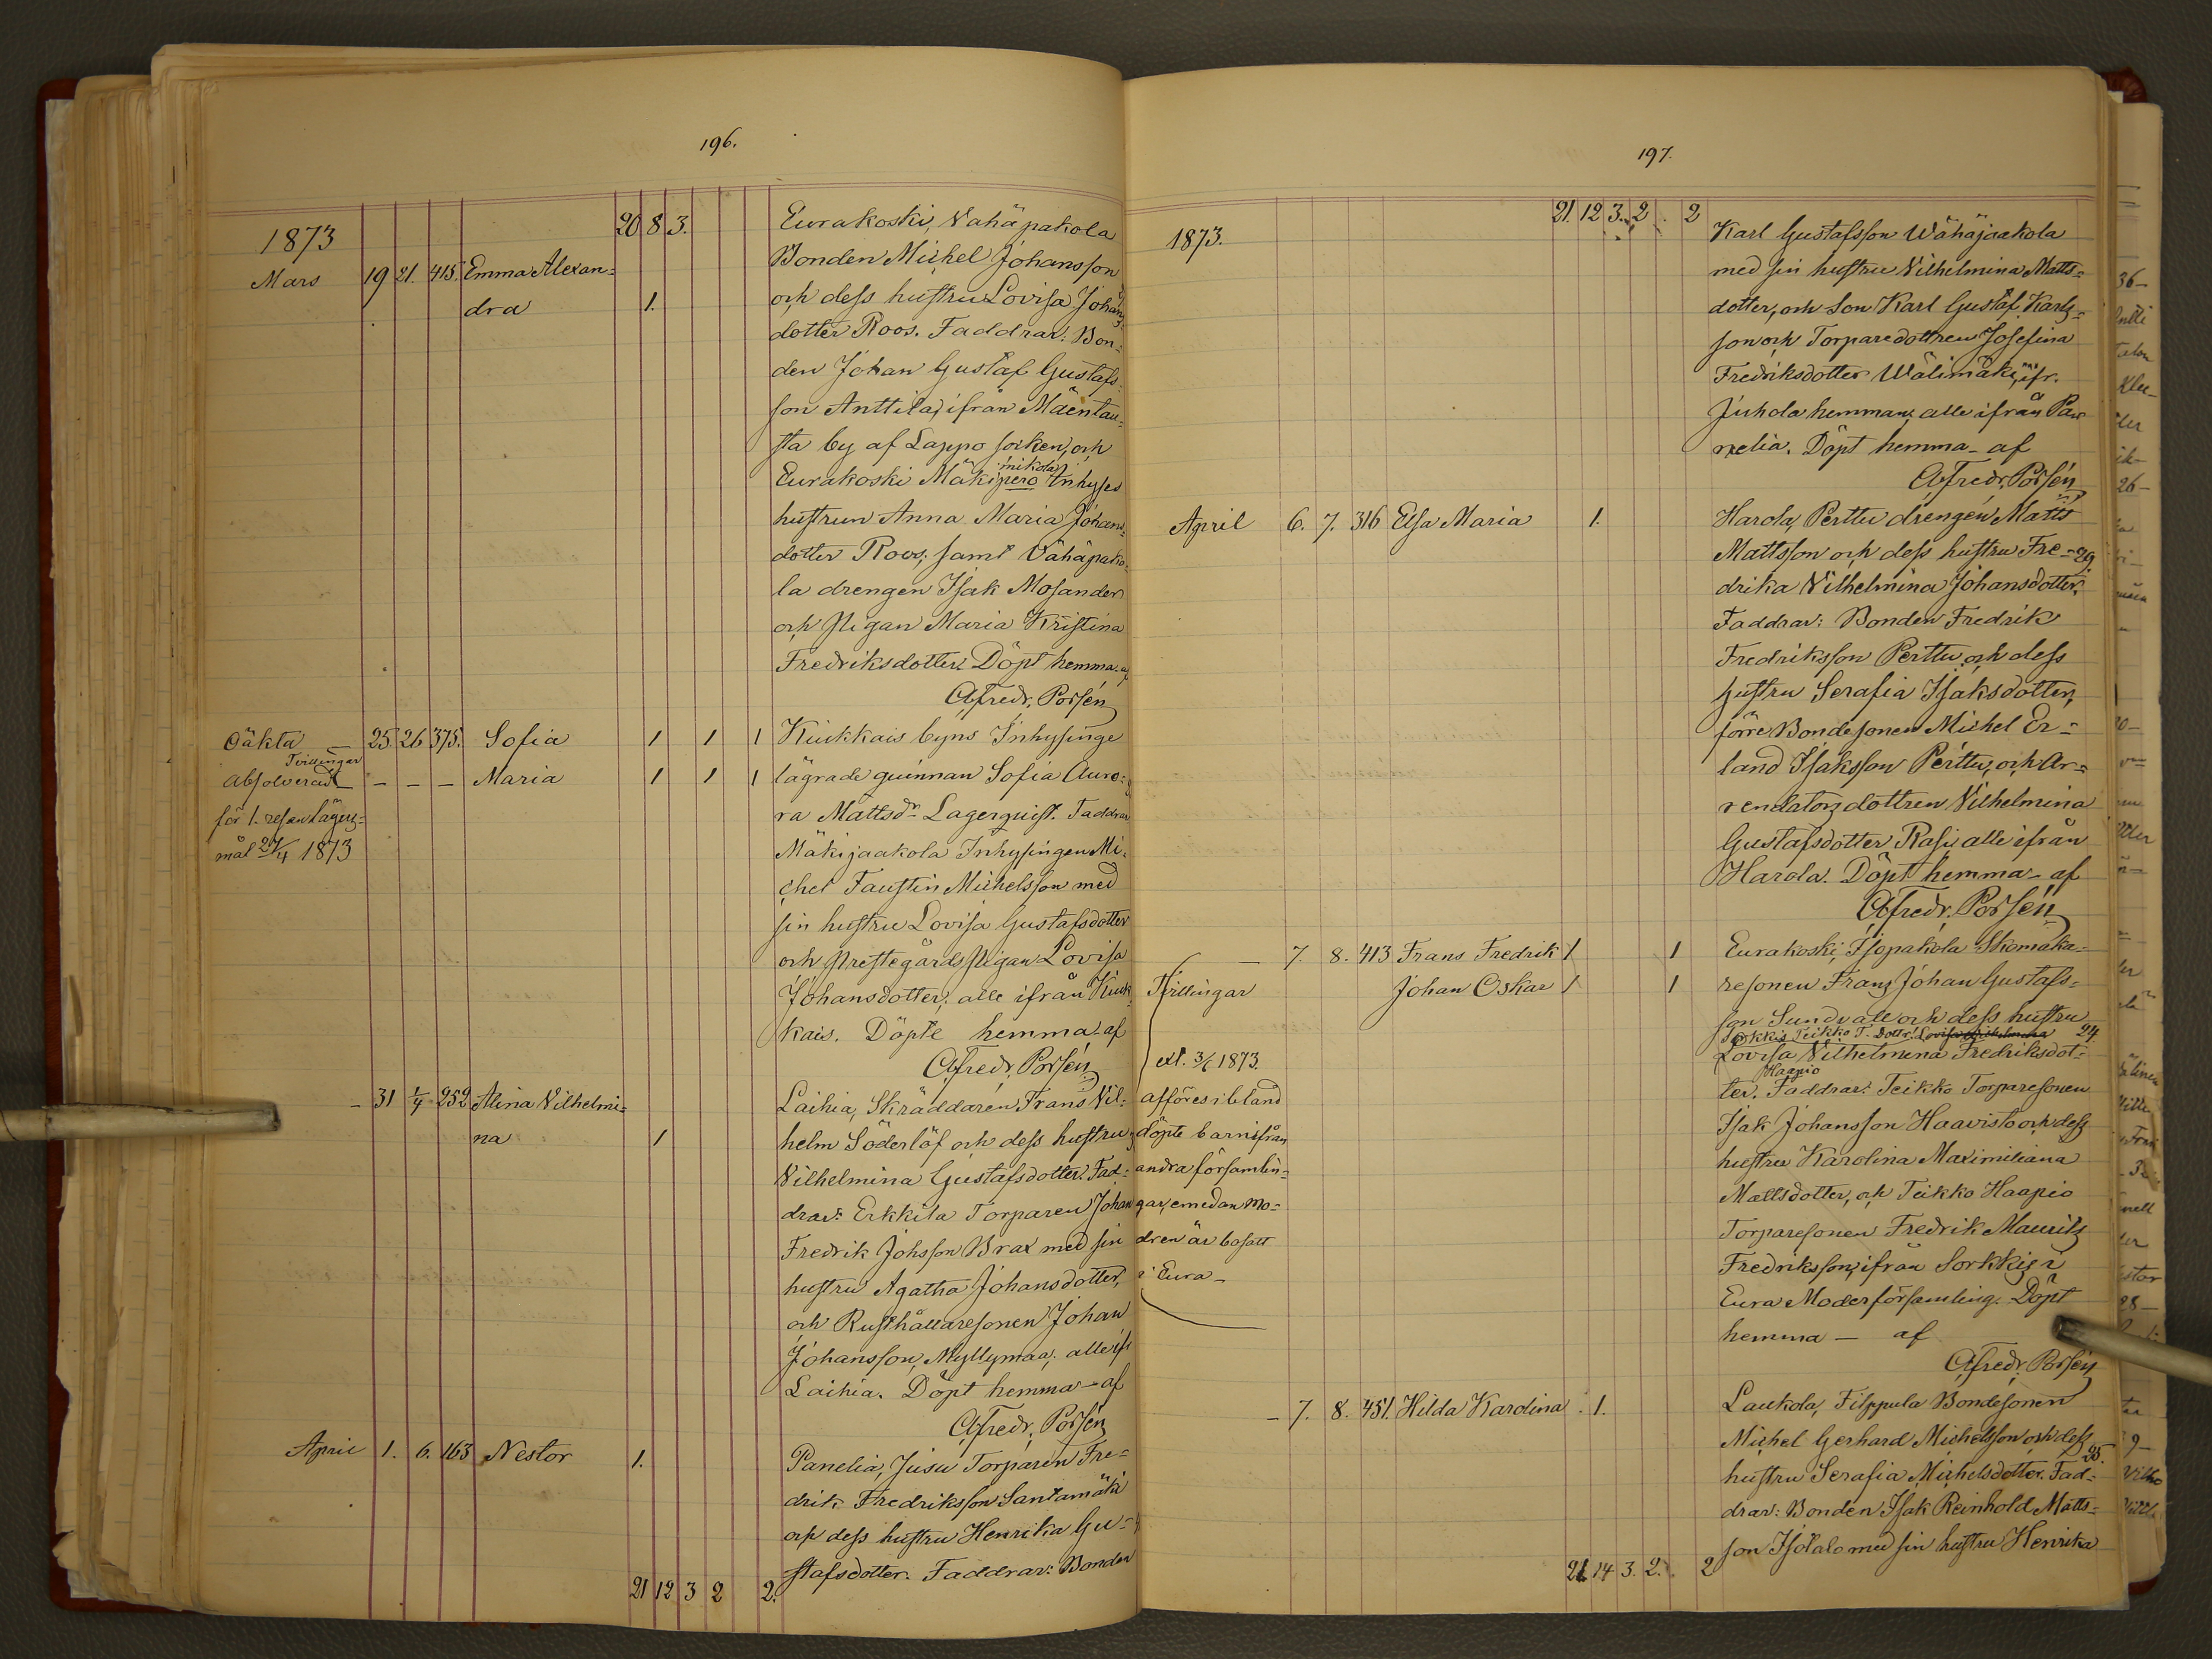 196.
1873
20 8 3.
Eurakoski, Vähäpakola
Bonden Michel Johansson
Mars 19 21. 415. Emma Alexan=
dra 1.
och dess hustru Lovisa Johans
dotter Roos. Faddrar: Bon=
den Johan Gustaf Gustafs
son Anttila, ifrån Mäentau=
sta by af Lappo socken, och
Eurakoski Mäkipero Inhyses
hustrun Anna Maria Johans
dotter Roos, samt Vähäpako=
la drengen Isak Mosander
och pigan Maria Kristina
Fredriksdotter. Döpt hemma af
Alfredr. Porsén
Oäkta 25. 26 375. Sofia 1 1 1 Kiukkais byns Inhysinge
Tvillingar
Absolverad – – – Maria 1 1 1 lägrade quinnan Sofia Auro=
för 1. resan lägers=
ra Mattsdr Lagerquist. Faddrar
mål 27/4 1873
Mäkijaakola Inhysingen Mi=
chel Faustin Michelsson med
sin hustru Lovisa Gustafsdotter
och Prestegårds pigan Lovisa
Johansdotter, alle ifrån Kiuk
kais. Döpte hemma af
Alfredr. Porsén
– 31 1/4 252 Alina Vilhelmi=
na 1
Laihia, Skräddaren Frans Vil=
helm Söderlöf och dess hustru
Vilhelmina Gustafsdotter. Fad=
drar: Erkkila Torparen Johan
Fredrik Johsson Brax med sin
hustru Agatha Johansdotter,
och Rusthållaresonen Johan
Johansson, Myllymaa, alle ifr
Laihia. Döpt hemma – af
Alfredr. Porsén
April 1. 6. 163 Nestor 1.
Panelia, Jusu Torparen Fre=
drik Fredriksson Santamäki
och dess hustru Henrika Gu=
stafsdotter. Faddrar: Bonden
21 12 3 2 2.
197.
1873.
21. 12 3. 2 2
Karl Gustafsson Wähäjaakola
med sin hustru Vilhelmina Matts=
dotter, och Son Karl Gustaf Karls=
son och Torparedottren Josefina
Fredriksdotter Wälimäki, ifr.
Juhola hemman, alle ifrån Pa
nelia. Döpt hemma – af
Alfredr. Porsén
April 6. 7. 316 Elsa Maria 1.
Harola, Perttu drengen Matts
Mattsson och dess hustru Fre= 29
drika Vilhelmina Johansdotter.
Faddrar: Bonden Fredrik
Fredriksson Perttu och dess
hustru Serafia Isaksdotter,
förre Bondesonen Michel Er=
land Isaksson Perttu, och Ar=
rendators dottren Vilhelmina
Gustafsdotter Rasi, alle ifrån
Harola. Döpt hemma – af
Alfredr. Porsén
– 7. 8. 413 Frans Fredrik 1 1
Tvillingar Johan Oskar 1 1
Eurakoski, Isopakola Skomaka=
resonen Frans Johan Gustafs=
son Sundvall och dess hustru
Sorkkis Teikko T. Dottr. Lovisa Vilhelmina 24
Lovisa Vilhelmina Fredriksdot=
Haapio
ter. Faddrar: Teikko Torparesonen
Isak Johansson Haavisto och dess
hustru Karolina Maximiliana
Mattsdotter, och Teikko Haapio
Torparesonen Fredrik Maurits
Fredriksson, ifrån Sorkkis i
Eura Moderförsamling. Döpt
hemma – af
Alfredr. Porsén
ext. 3/6 1873.
afföres ibland
döpte barn ifrån
andra församlin=
gar, emedan mo=
dren är bosatt
i Eura –
– 7. 8. 451. Hilda Karolina 1.
Laukola, Filppula Bondesonen
Michel Gerhard Michelsson och dess
25.
hustru Serafia Michelsdotter. Fad=
drar: Bonden Isak Reinhold Matts=
son Isotalo med sin hustru Henrika
21. 14 3. 2. 2